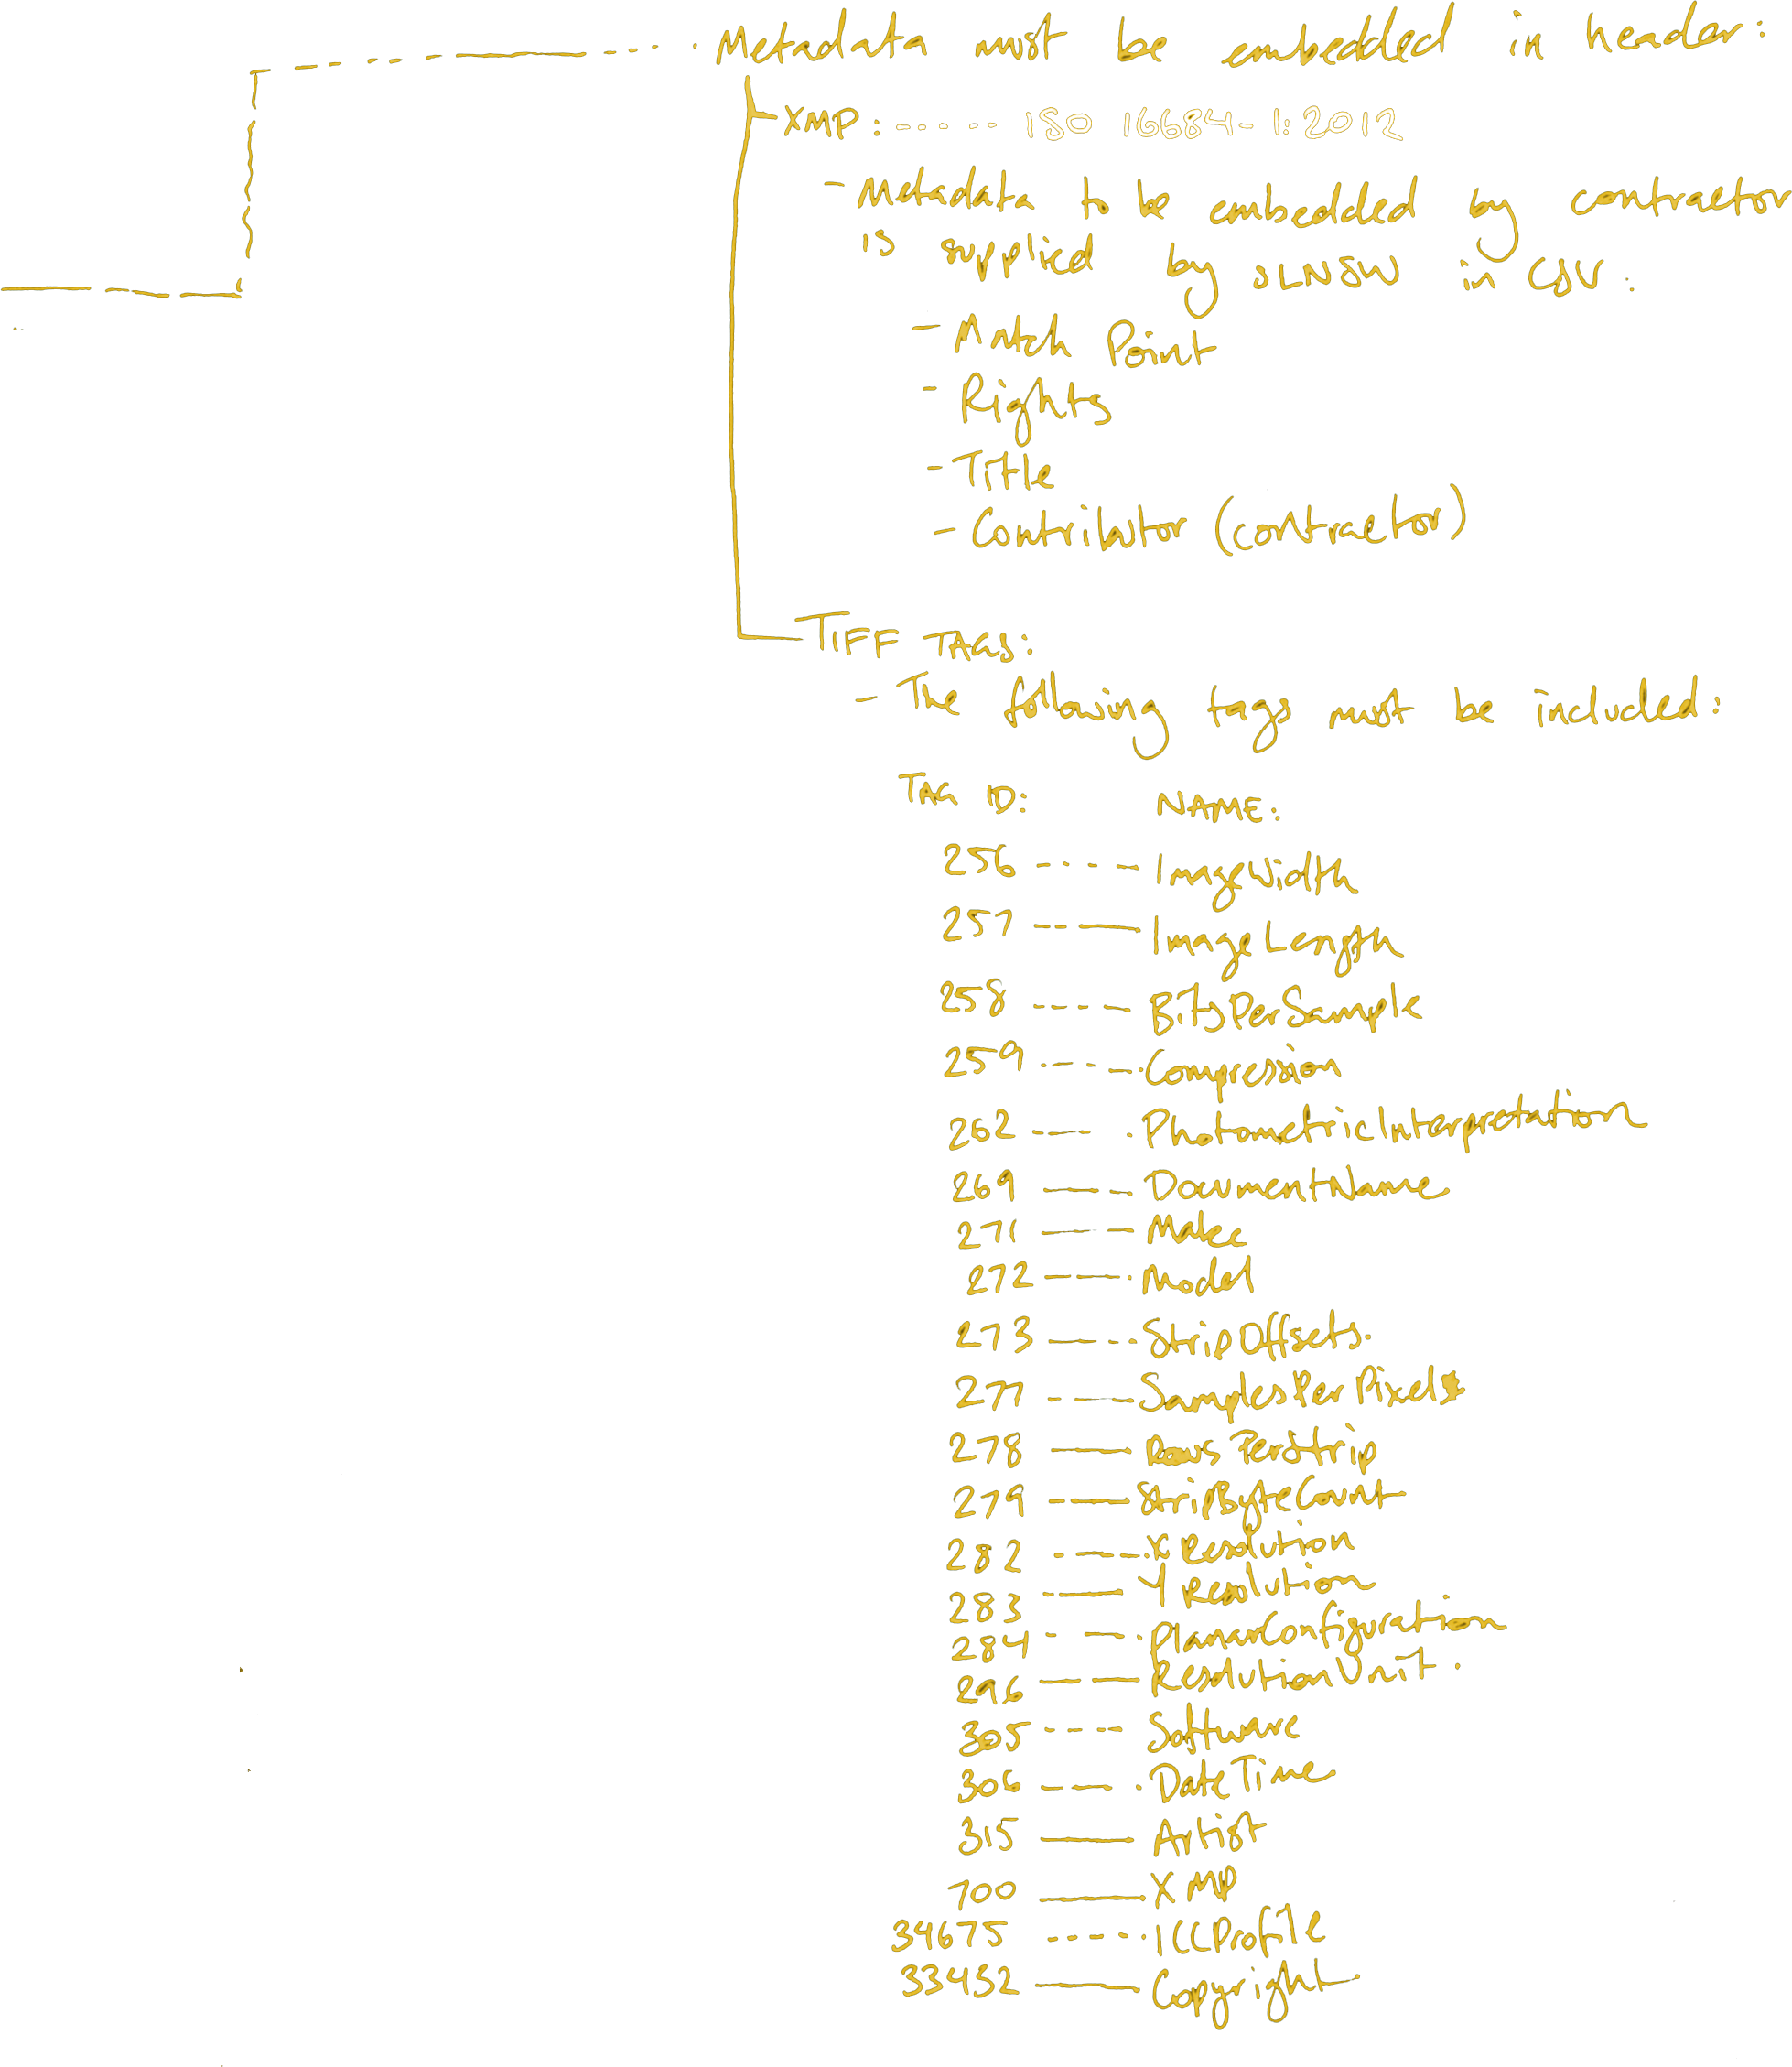 Metadata must be embedded in header:
XMP: ----- ISO 16684-1:2012
- Metadata to be embedded by contractor
is supplied by SLNSW in CSV.
- Match Point
- Rights
- Title
- Contributor (contractor)
TIFF TAGS:
- The following tags must be included:
TAG ID: NAME:
256 ---- ImageWidth
257 ---- ImageLength
258 ---- BitsPerSample
259 ---- Compression
262 ---- PhotometricInterpretation
269 ---- DocumentName
271 ---- Make
272 ---- Model
273 ---- StripOffsets.
277 ---- SamplesPerPixel
278 ---- RowsPerStrip
279 ---- StripByteCount
282 ---- XResolution
283 ---- YResolution
284 ---- PlanarConfiguration
296 ---- ResolutionUnit.
305 ---- Software
306 ---- DateTime
315 ---- Artist
700 ---- XMP
34675 ---- ICCProfile
33432 ---- Copyright